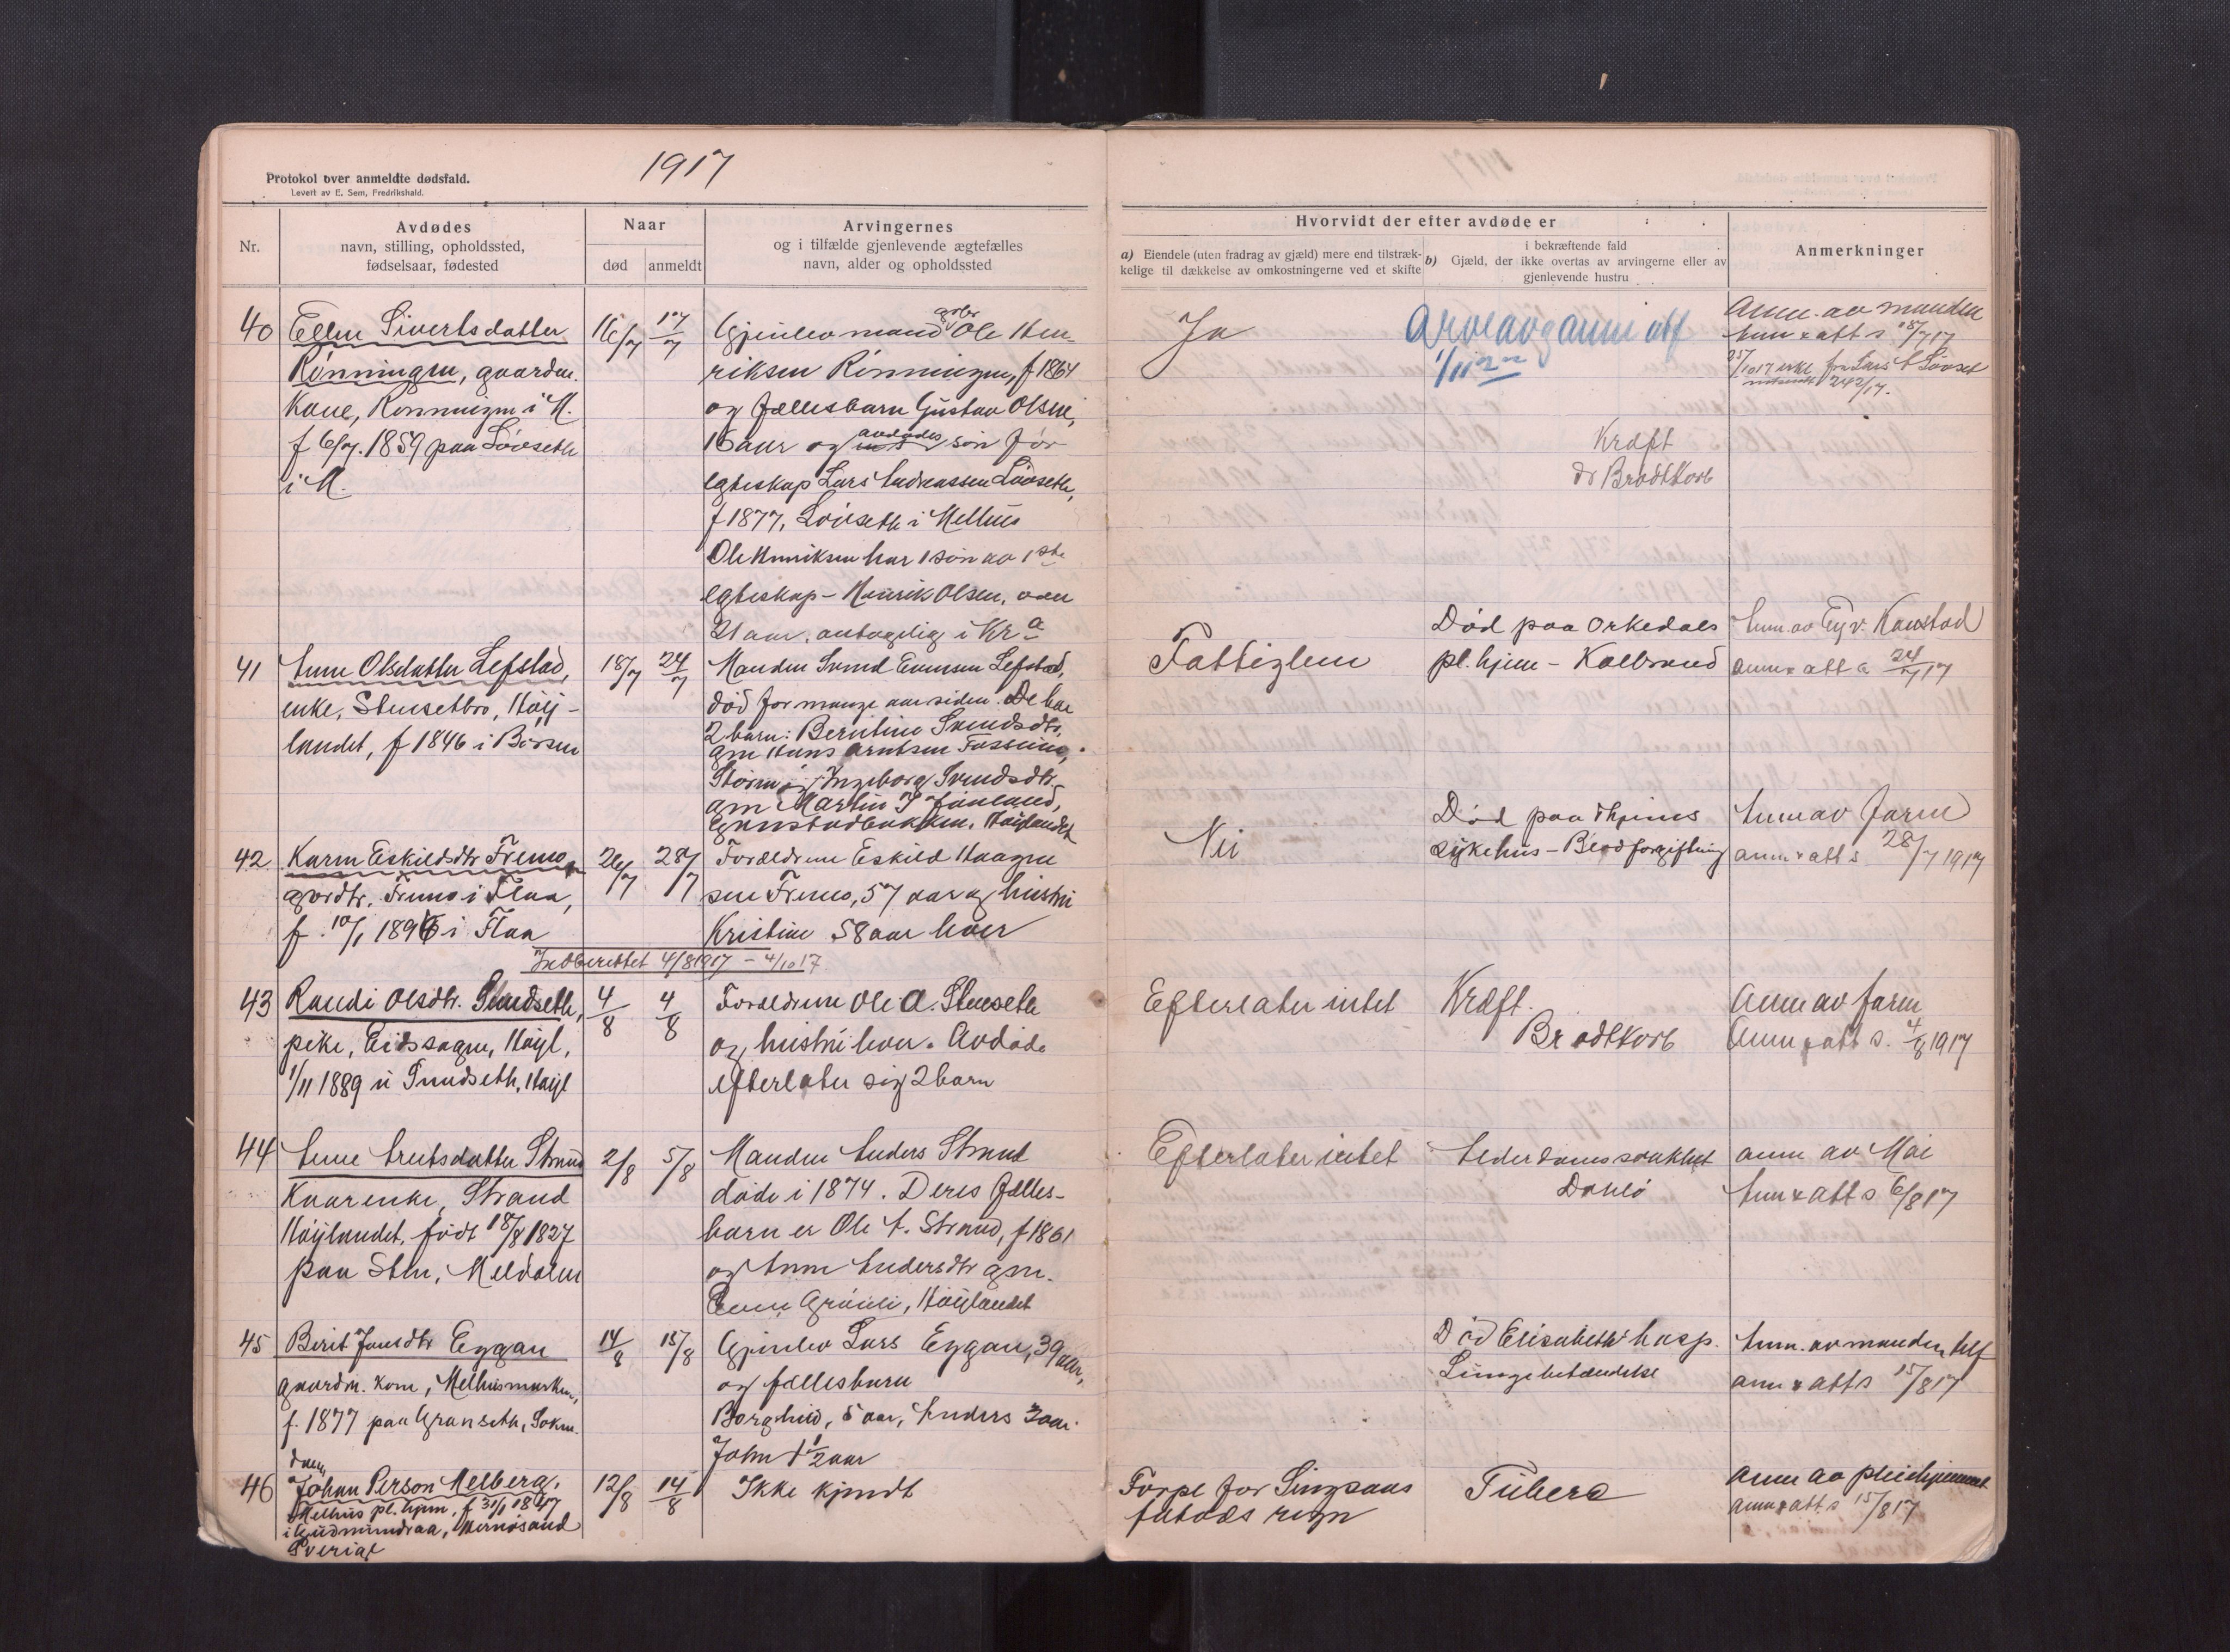 1917
Protokol over anmeldte dødsfald.
Levert av E. Sem, Fredrikshald.
Nr.
Avdødes
navn, stilling, opholdssted,
fødselsaar, fødested
Naar
død
anmeldt
Arvingernes
og i tilfælde gjenlevende ægtefælles
navn, alder og opholdssted
Hvorvidt der efter avdøde er
a) Eiendele (uten fradrag av gjæld) mere end tilstræk-
kelige til dækkelse av omkostningerne ved et skifte
i bekræftende fald
b) Gjæld, der ikke overtas av arvingerne eller av
gjenlevende hustru
Anmerkninger
40
Ellen Sivertsdatter
Rønningen, gaardm.
Kone, Rønningen i M.
f 6/7. 1859 paa Løvseth
i M.
16/7
17/7
Gjenlev mand gbr Ole Hen-
riksen Rønningen, f 1864
og fællesbarn Gustav Olsen,
16 aar og avdødes søn før
egteskap Lars Andreassen Løvseth,
f 1877, Løvseth i Melhus
Ole Henriksen har 1 søn av 1ste
egteskap - Henrik Olsen, over
21 aar, antagelig i Kra
Ja
Kræft
dr Brodtkorb
Anm. av manden
Anm x att s 18/7 17
41
Anne Olsdatter Lefstad,
enke, Stensetbro, Høy-
landet, f 1846 i Børsen
18/7
24/7
Manden Svend Evensen Lefstad,
død for mange aar siden. De har
2 barn: Berntine Svendsdtr.
gm Hans Arntsen
Støren og Ingeborg Svendsdtr
gm Martin
Høylandet
Fattiglem
Død paa Orkedals
pl. hjem - Kolbrand
anm x att s 24/7 17
42
Karen Eskildsdtr Fremo,
gbrdtr. Fremo i Flaa,
f. 10/1 1896 i Flaa
26/7
28/7
Forældrene Eskild Haagen
sen Fremo, 57 aar og hustru
Kristine 58 aar hver
Nei
Død paa Thjems
sykehus - Blodforgiftning
Anm av faren
anm x att s 28/7 1917
Indberettet 4/8 1917 - 4/10 17
43
Randi Olsdtr. Sundseth,
pike, Eidssagen, Høyl,
1/11 1889 i Sundseth, Høyl
4/8
4/8
Forældrene Ole O. Stenseth
og hustru hver. Avdøde
efterlater sig 2 barn
Efterlater intet
Kræft.
Brodtkorb
Anm av faren
Anm x att s. 4/8 1917
44
Anne Arntsdatter Strand
Kaarenke, Strand
Høylandet, født 18/8 1827
paa Sten, Meldalen
2/8
5/8
Manden Anders Strand
døde i 1874. Deres fælles-
barn er Ole A. Strand, f 1861
og Anne Andersdtr gm.
Høylandet
Efterlater intet
Alderdomssvakhet
Dahlø
anm av Moe
Anm x att s 6/8 17
45
Berit Jonsdtr Eggan
gaardm. kone, Melhusmarken,
f. 1877 paa Granseth, Sokne-
dalen
14/8
15/8
Gjenlev Lars Eggan, 39 aar,
og fællesbarn
Borghild, 5 aar, Anders 3 aar.
John 1 1/2 aar
Død Elisabeths hosp.
Lungebetændelse
Anm. av manden telf
anm x att s 15/8 17
46
Johan Person Melberg,
Melhus pl. hjem, f 31/1 1847
i Gudmundraa, Hernøsand
Sverige
12/8
14/8
Ikke kjendt
Forpl for Singsaas
Tuberc
Anm av pleiehjemmet
anm x att s 15/8 17